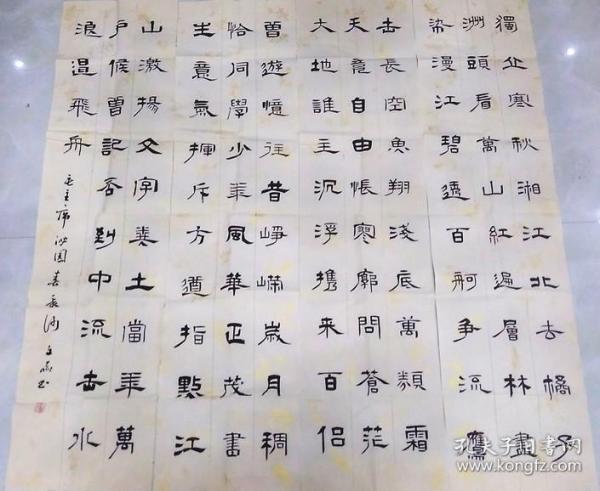 獨立寒秋湘江北去橘子
洲頭看萬山紅遍層林盡
染漫江碧透百舸爭流鷹
击長空魚翔淺底萬類霜
天竟自由悵寥廓問蒼茫
大地誰主沉浮攜來百侣
曾遊憶往昔崢嶸歲月稠
恰同學少年風華正茂書
生意氣揮斥方遒指點江
山激揚文字糞土當年萬
户候曾記否到中流击水
浪遏飛舟
毛主席沁园春長沙
孔夫子旧书网
www.kongfz.com